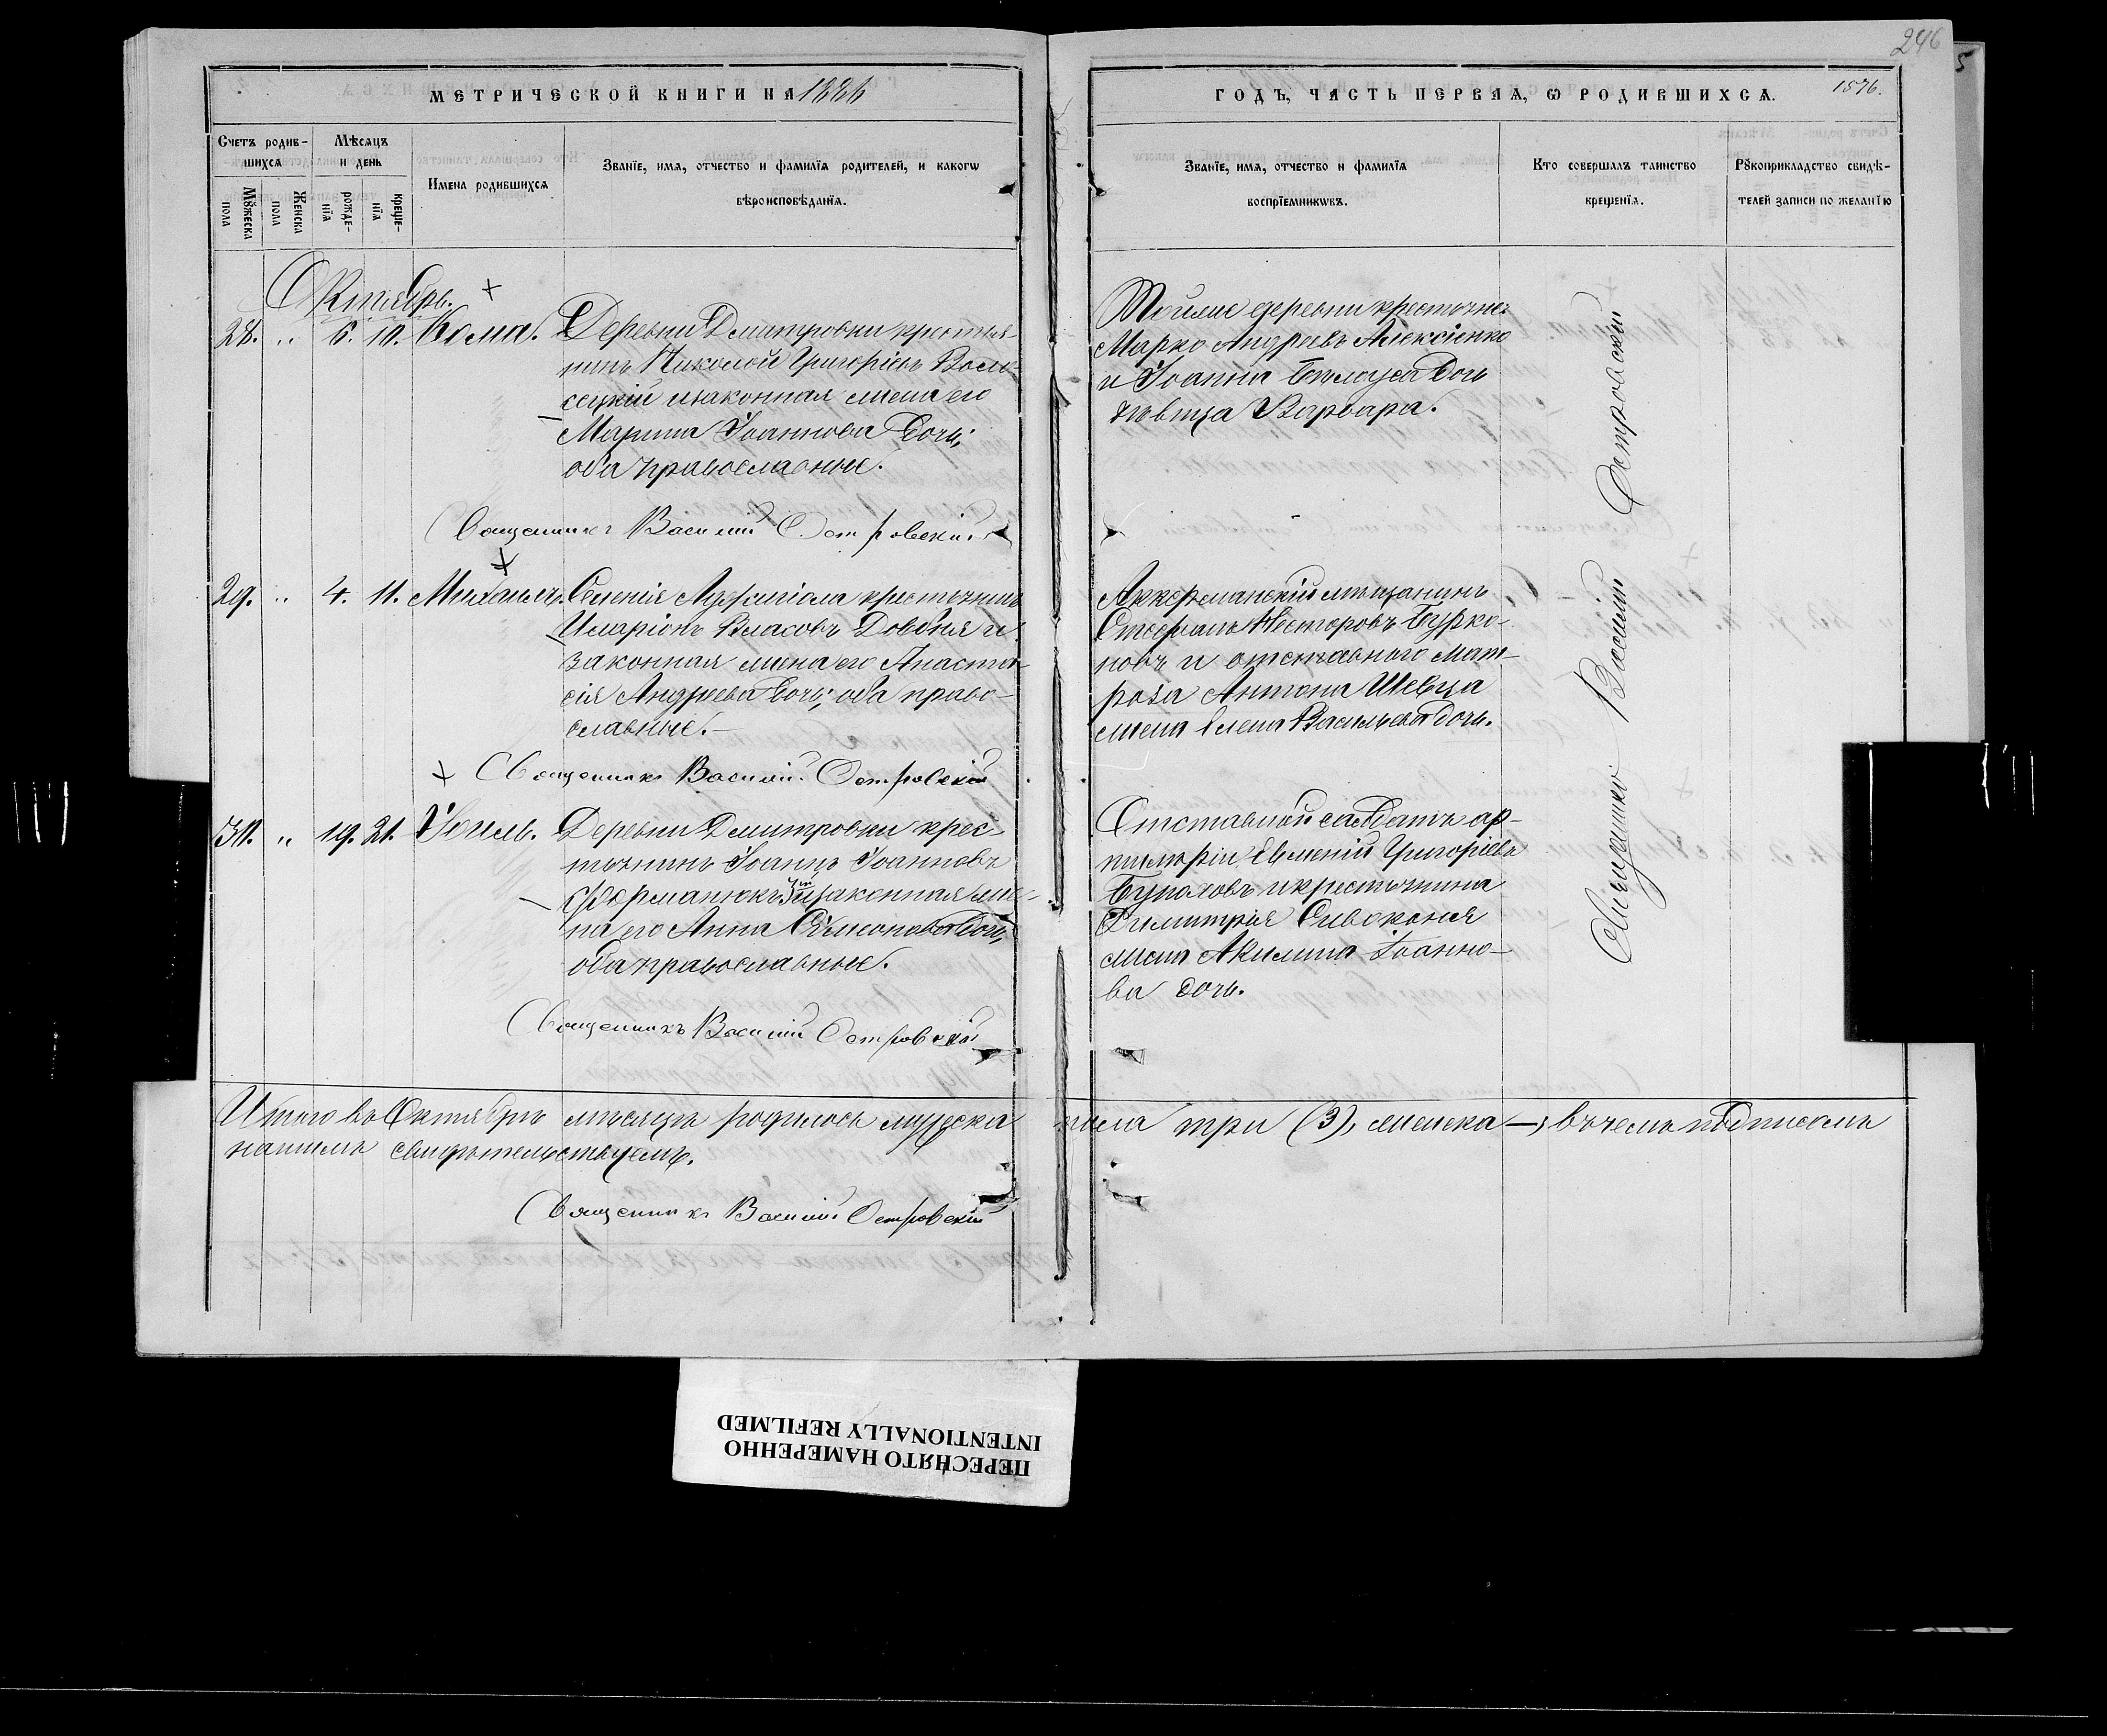 246
5
МЕТРИЧЕСКОЙ КНИГИ НА 1886
ГОДЪ, ЧАСТЬ ПЕРВАЯ, Ѡ РОДИВШИХСЯ.
1576.
Счетъ родив-
шихся
Мѣсяцъ
и день
Мꙋжеска
пола
Женска
пола
рожде-
нїя
креще-
нїя
Имена родившихся
Званїе, имя, отчество и фамилїя родителей, и какогѡ
вѣроисповѣданїя.
Званїе, имя, отчество и фамилїя
воспрїемникѡвъ.
Кто совершалъ таинство
крещенїя.
Рꙋкоприкладство свидѣ-
телей записи по желанїю
Октябрь.
28. " 6. 10. Козма. Деревни Дмитровки крестья-
нинъ Николай Григоріевъ
и законная жена его
Марина Іоаннова дочь;
оба православные.
Священникъ Василій Островскій
Тойже деревни крестьянинъ
Марко Андреевъ Алексіенко
и Іоанна Бѣлоуса дочь
дѣвица Варвара.
29. " 4. 11. Михаилъ. Селенія крестьянинъ
Иларіонъ Власовъ Довбня и
законная жена его Анаста-
сія Андреева дочь; оба право-
славные.
Священникъ Василій Островскій
Аккерманскій мѣщанинъ
Стефанъ Несторовъ Бурко-
новъ и отставного мат-
роза Антона Шевца
жена Елена Васильева дочь.
30. " 19. 21. Іоиль. Деревни Дмитровки крес-
тьянинъ Іоаннъ Іоанновъ
Фурманюкъ 3й и законная же-
на его Анна Симеонова дочь;
оба православные.
Священникъ Василій Островскій
Отставной солдатъ ар-
тилеріи Евменій Григоріевъ
и крестьянина
Димитрія Сивоконя
жена Акилина Іоанно-
ва дочь.
Священникъ Василій Островскій
Итого въ Октябрѣ мѣсяцѣ родилось мужеска пола три (3), женска —, въ чемъ подписомъ
нашимъ свидѣтельствуемъ.
Священникъ Василій Островскій
ПЕРЕСНЯТО НАМЕРЕННО
INTENTIONALLY REFILMED